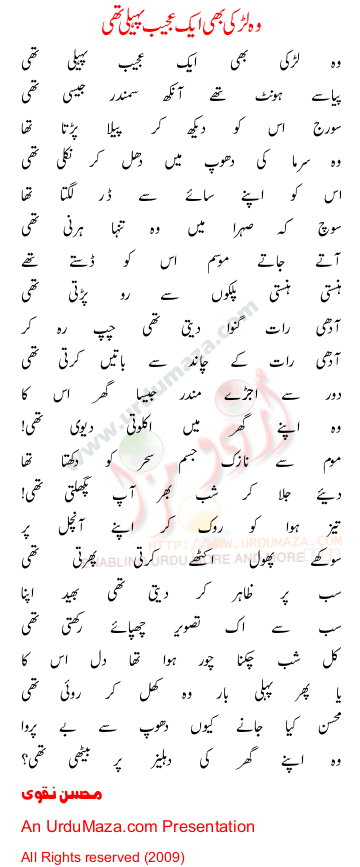 وہ لڑکی بھی ایک عجیب پہیلی تھی
وہ لڑکی بھی ایک عجیب پہیلی تھی
پیاسے ہونٹ تھے آنکھ سمندر جیسی تھی
سورج اس کو دیکھ کر پیلا پڑتا تھا
وہ سرما کی دھوپ میں دھل کر نکلی تھی
اس کو اپنے سائے سے ڈر لگتا تھا
سوچ کہ صہرا میں وہ تنہا ہرنی تھی
آتے جاتے موسم اس کو ڈستے تھے
ہنستی ہنستی پلکوں سے رو پڑتی تھی
آدھی رات گنوا دیتی تھی چپ رہ کر
آدھی رات کے چاند سے باتیں کرتی تھی
دور سے اجڑے مندر جیسا گھر اس کا
وہ اپنے گھر میں اکلوتی دیوی تھی!
موم سے نازک جسم سحر کو دکھتا تھا
دیئے جلا کر شب بھر آپ پگھلتی تھی!
تیز ہوا کو روک کر اپنے آنچل پر
سوکھے پھول اکٹھے کرتی پھرتی تھی
سب پر ظاہر کر دیتی تھی بھید اپنا
سب سے اک تصویر چھپائے رکھتی تھی
کل شب چکنا چور ہوا تھا دل اس کا
یا پھر پہلی بار وہ کھل کر روئی تھی
محسن کیا جانے کیوں دھوپ سے بے پروا
وہ اپنے گھر کی دہلیز پر بیٹھی تھی؟
محسن نقوی
An UrduMaza.com Presentation
All Rights reserved (2009)
www.urdumaza.com
اردو مزا
HTTP://WWW.URDUMAZA.COM
ENABLING URDU MORE AND MORE